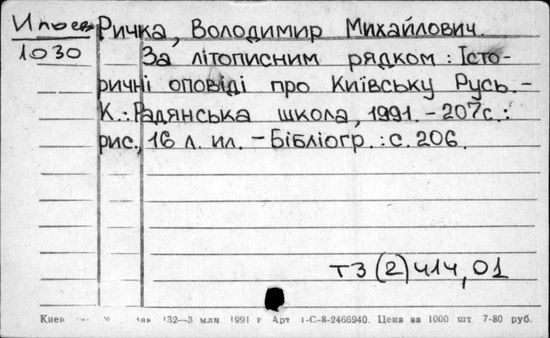 Ричка, Володимир Михайлович.
1030
За літописним рядком: Істо-
ричні оповіді про Київську Русь.-
К.: Радянська школа, 1991. - 207с.:
рис., 16 л. ил. - Бібліогр.: с. 206.
Т3(2)414,01
Киев 132—3 млн 1991 г Арт 1-С-8-2466940. Цена за 1000 шт. 7-80 руб.